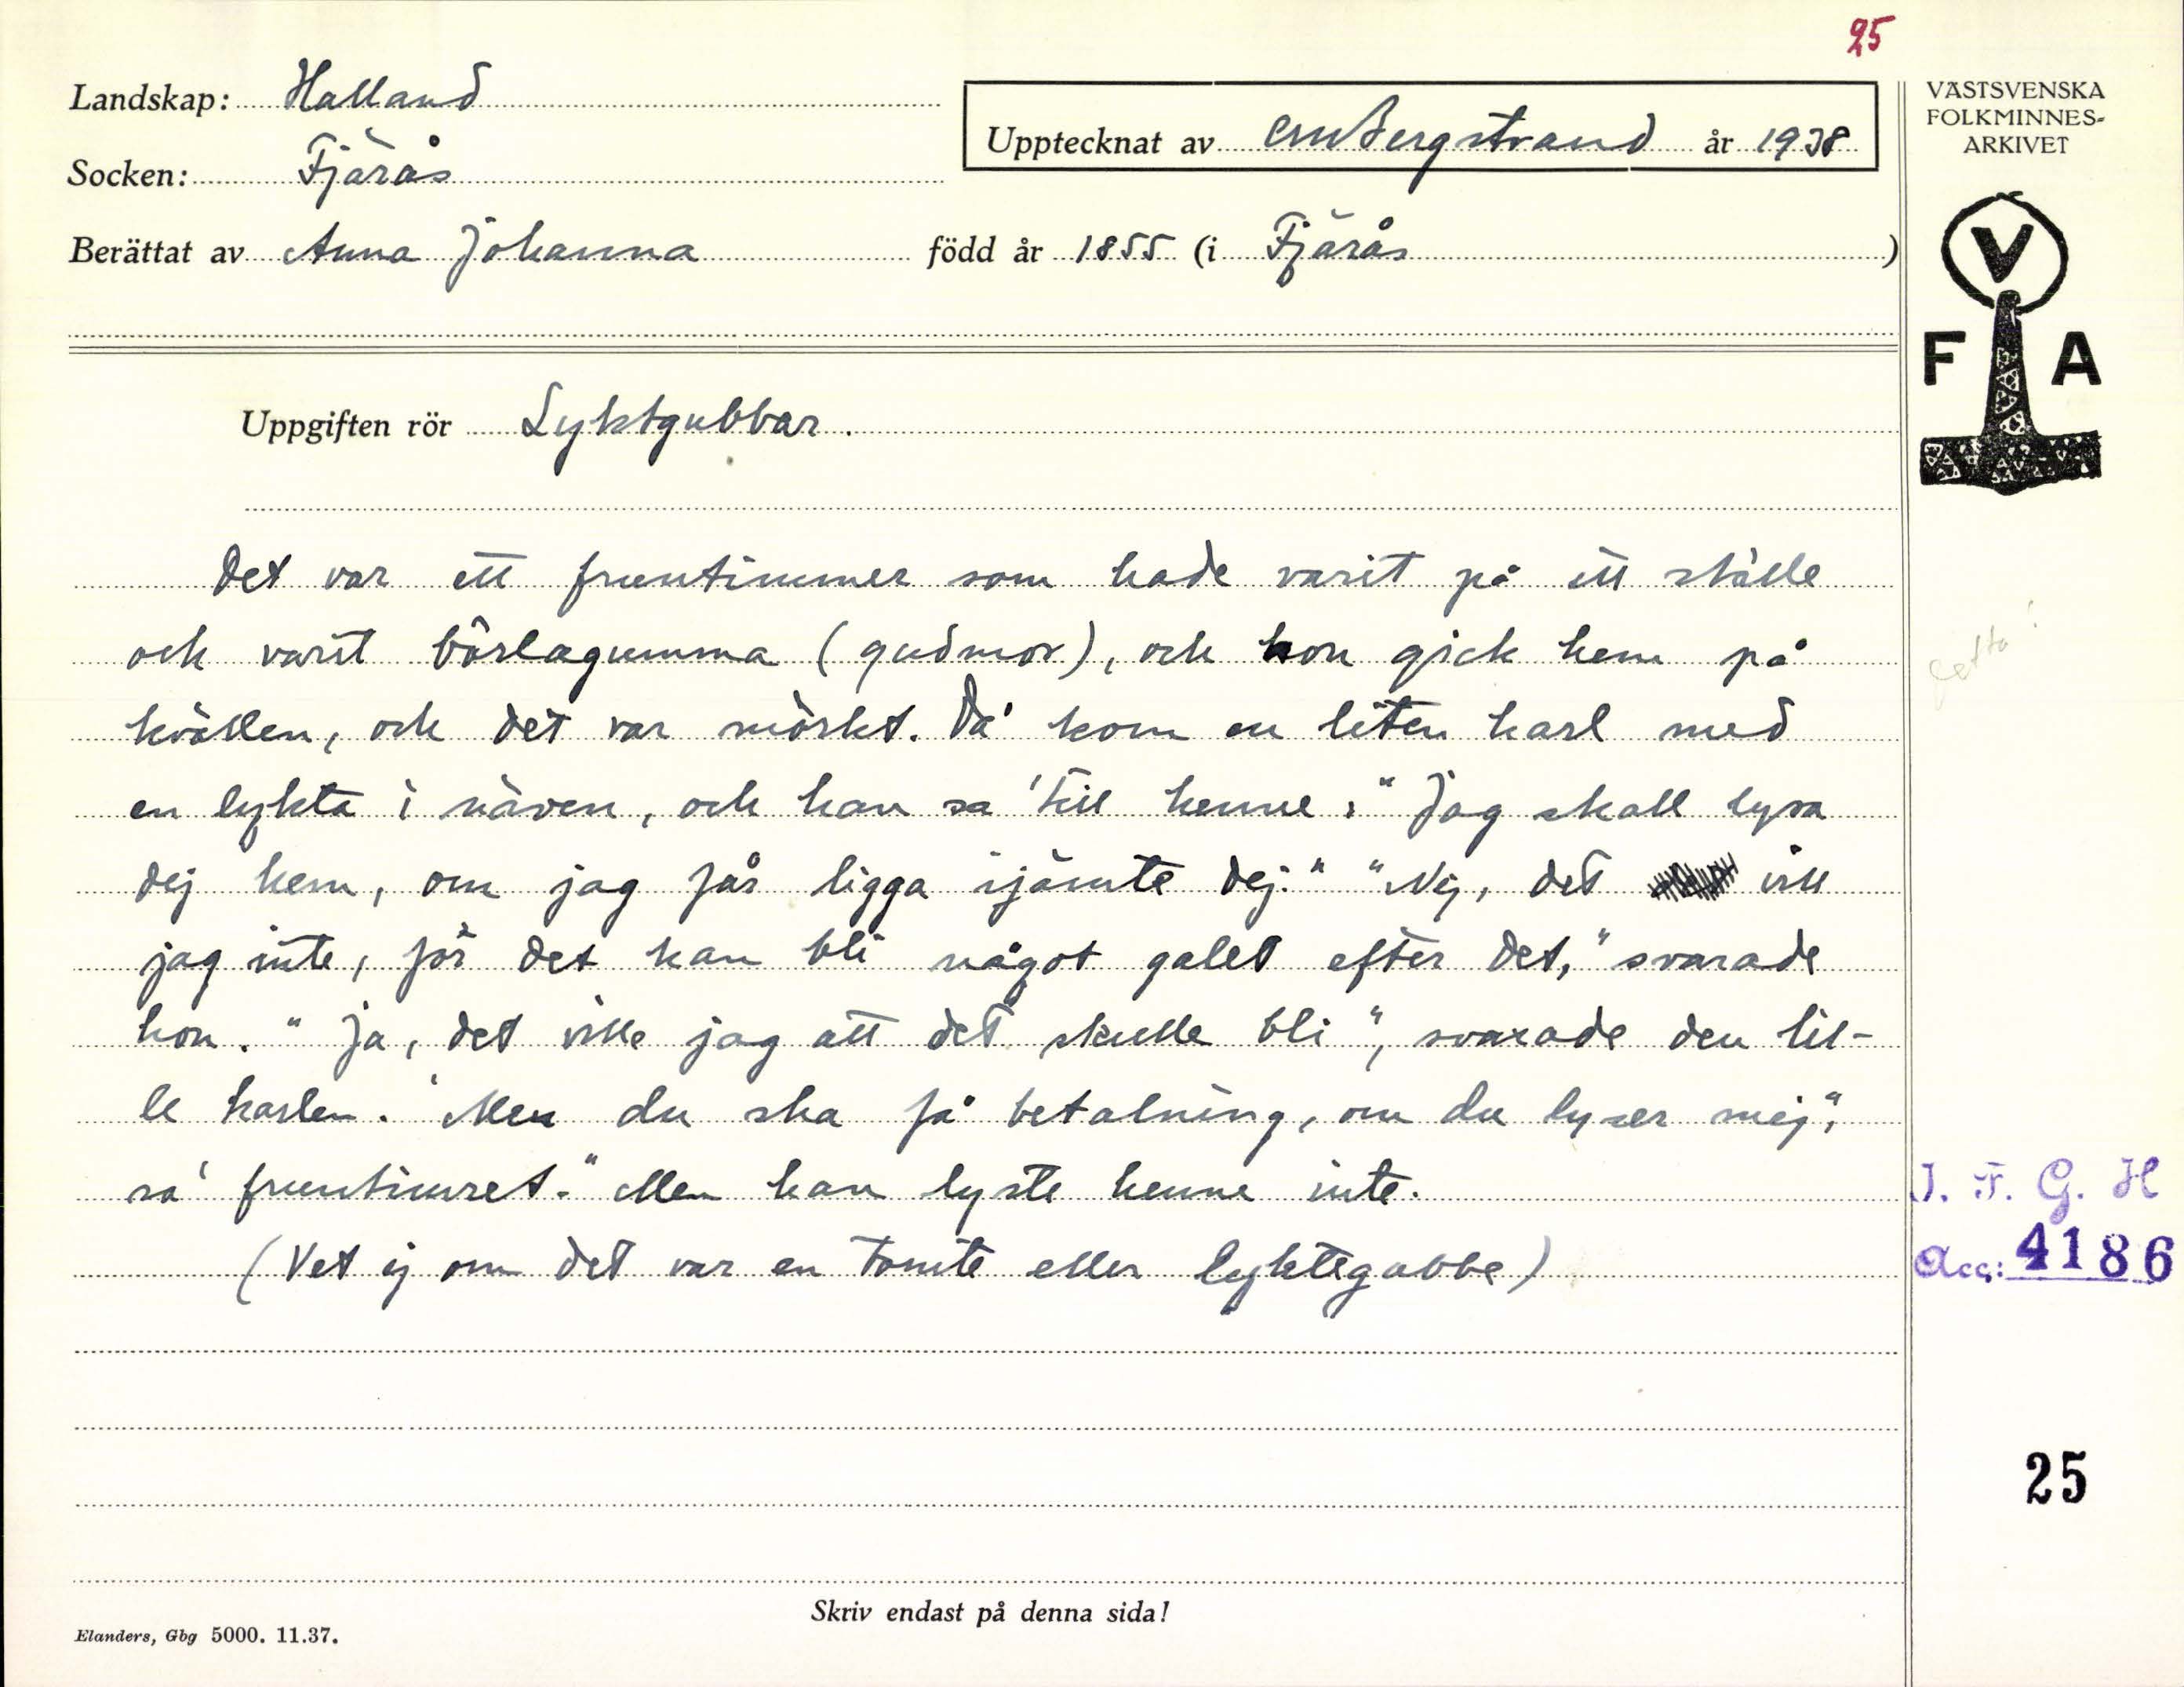 25
Landskap: Halland
Upptecknat av CMBergstrand år 1938
Socken: Fjärås
Berättat av Anna Johanna född år 1855 (i Fjärås)
VÄSTSVENSKA
FOLKMINNES-
ARKIVET
V
F A
Uppgiften rör Lyktgubbar.
Det var ett fruntimmer som hade varit på ett ställe
och varit bårlagumma (gudmor), och hon gick hem på
kvällen, och det var mörkt. Då kom en liten karl med
en lykta i näven, och han sa' till henne: "Jag skall lysa
dej hem, om jag får ligga ijämte dej." "Nej, det vill
jag inte, för det kan bli något galet efter det," svarade
hon. "Ja, det ville jag att det skulle bli", svarade den lil-
le karlen. "Men du ska få betalning, om du lyser mej",
sa' fruntimret." Men han lyste henne inte.
(Vet ej om det var en tomte eller lyktegubbe)
I. F. G. H
Acc: 4186
25
Skriv endast på denna sida!
Elanders, Gbg 5000. 11.37.